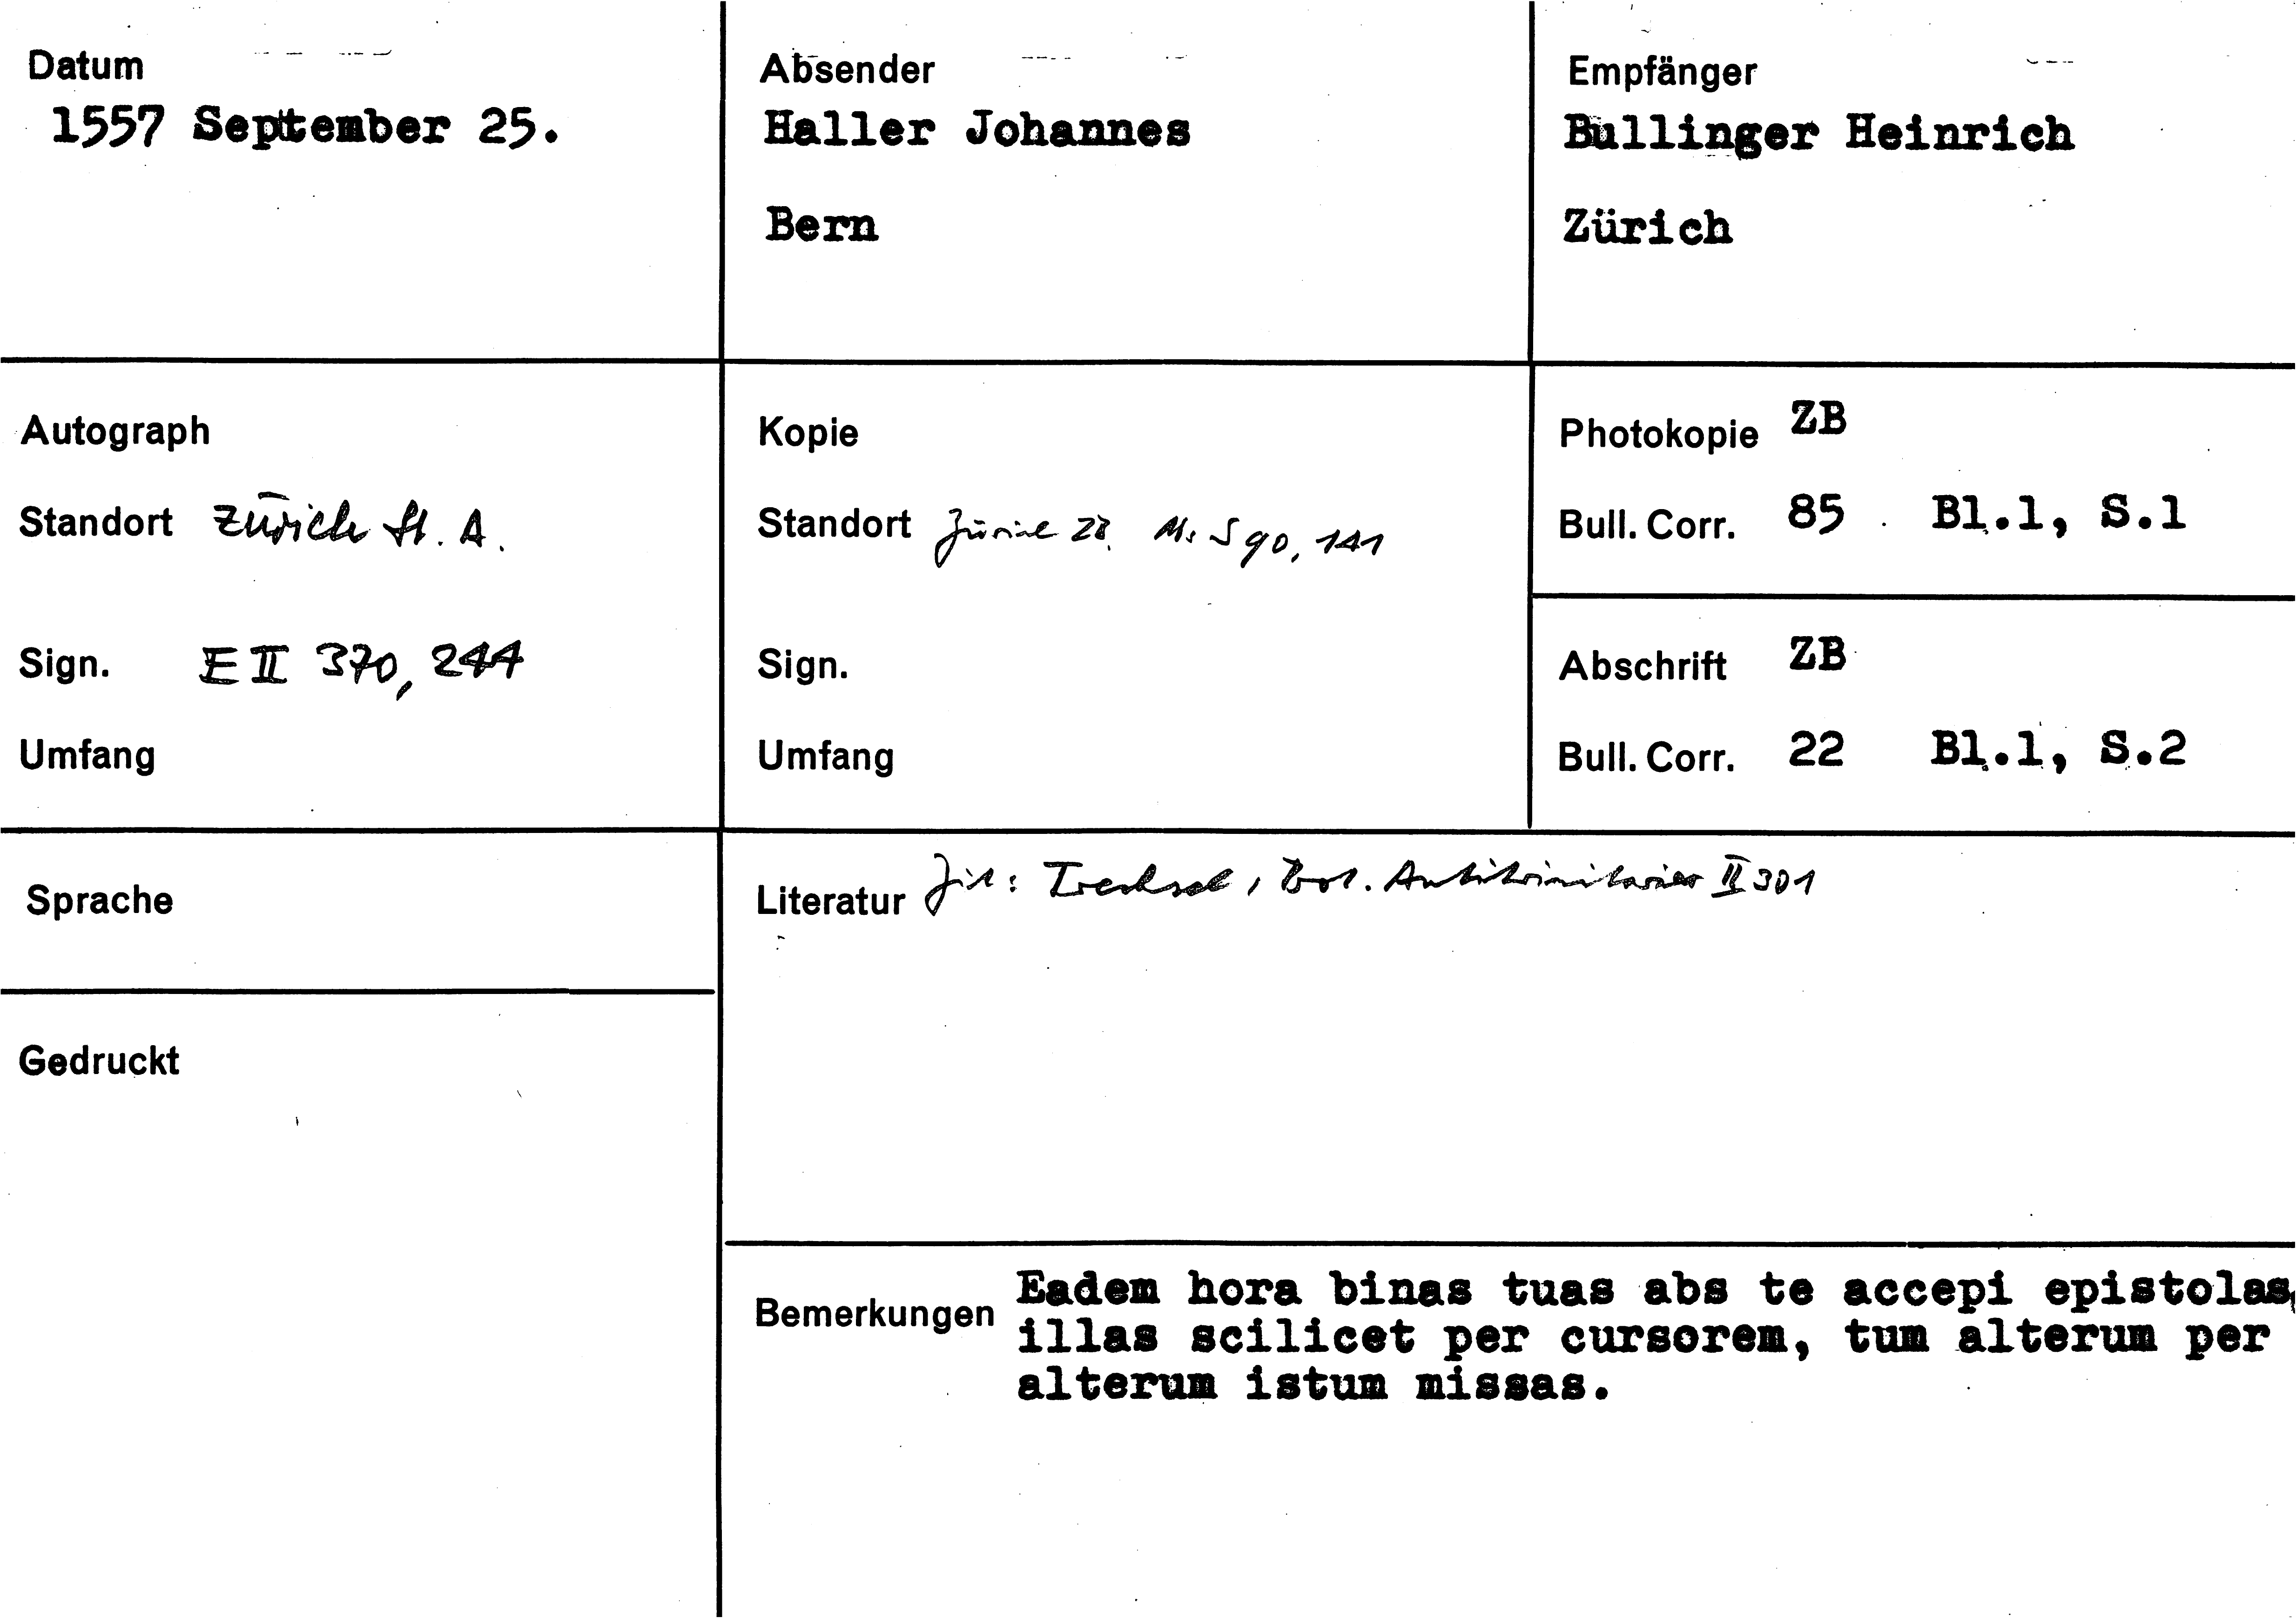 Datum
1557 September 25.
Absender
Haller Johannes
Bern
Empfänger
Bullinger Heinrich
Zürich
Autograph
Standort Zürich St. A.
Sign. E II 370, 244
Umfang
Kopie
Standort Zürich ZB. Ms S 90, 141
Sign.
Umfang
Photokopie ZB
Bull. Corr. 85 Bl.1, S.1
Abschrift ZB
Bull. Corr. 22 Bl.1, S.2
Sprache
Gedruckt
Literatur Zit: Trechsel, Prot. Antitrinitarier II 301
Bemerkungen Eadem hora binas tuas abs te accepi epistolas,
illas scilicet per cursorem, tum alterum per
alterum istum missas.